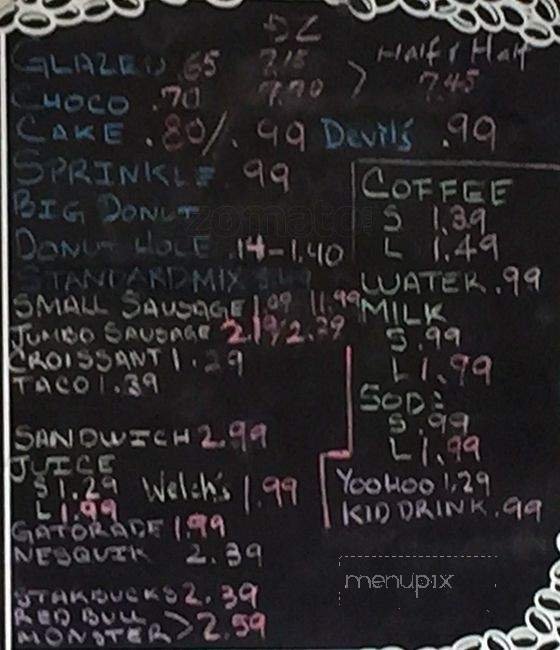 DZ
GLAZED .65 7.15
Half & Half
CHOCO .70 7.70 > 7.45
CAKE .80/.99 Devil's .99
SPRINKLE .99
BIG DONUT
DONUT HOLE .14-1.40
STANDARD MIX
SMALL SAUSAGE 1.09 11.99
JUMBO SAUSAGE 2.19/2.39
CROISSANT 1.29
TACO 1.39
SANDWICH 2.99
JUICE
S 1.29 Welch's 1.99
L 1.99
GATORADE 1.99
NESQUIK 2.39
STARBUCKS 2.39
RED BULL
MONSTER > 2.59
COFFEE
S 1.39
L 1.49
WATER .99
MILK
S .99
L 1.99
SODA
S .99
L 1.99
YOOHOO 1.29
KID DRINK .99
zomato
menupix